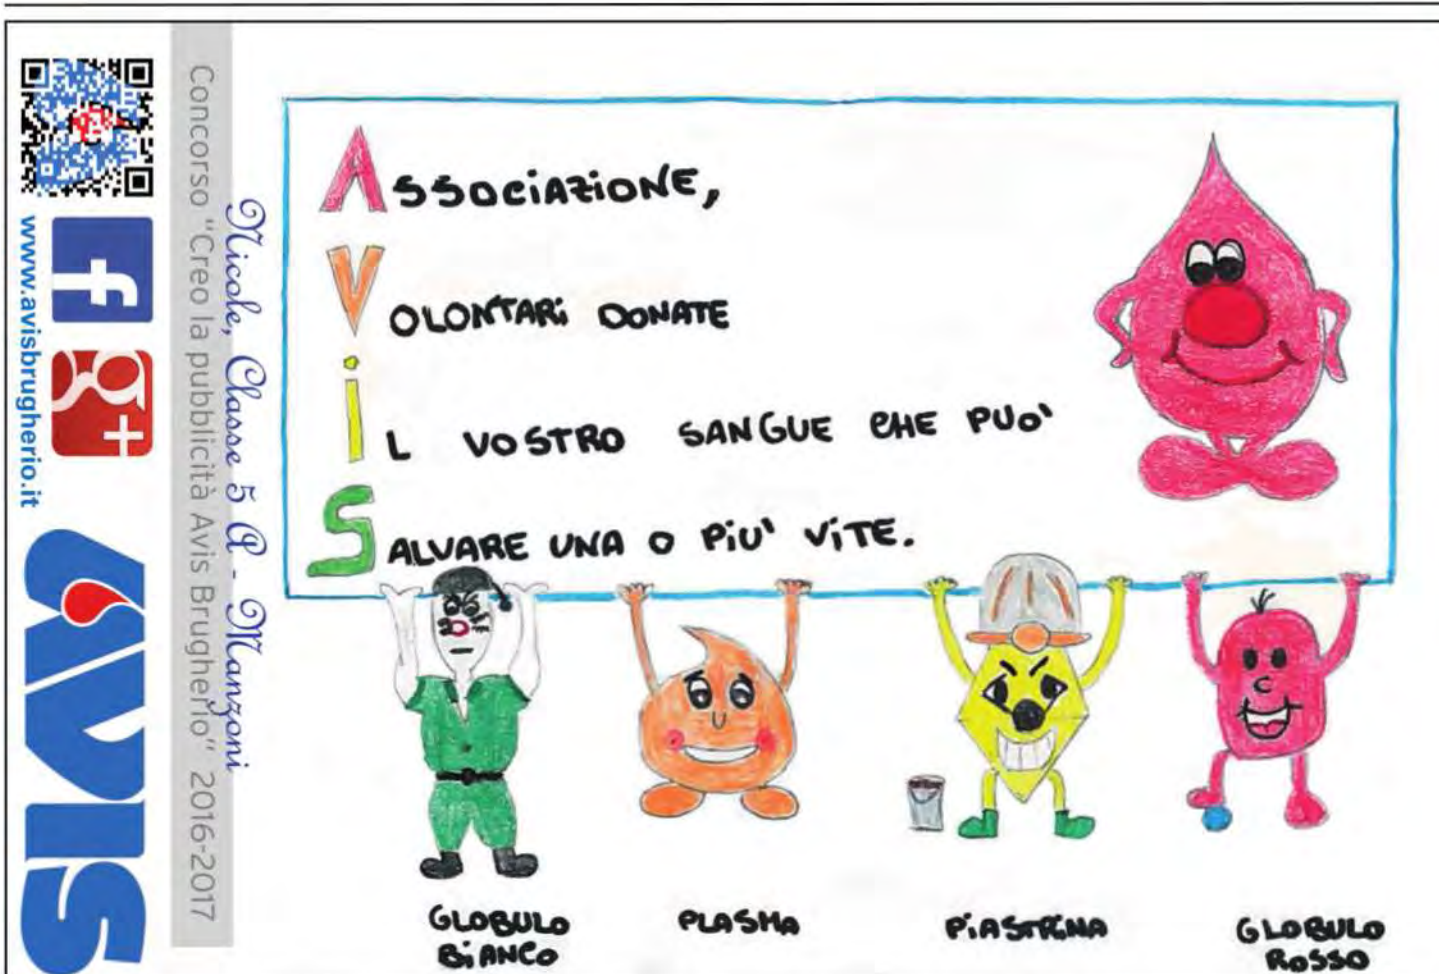 www.avisbrugherio.it
f
g+
AVIS
Concorso "Creo la pubblicità Avis Brugherio" 2016-2017
Nicole, Classe 5 A - Manzoni
ASSOCIAZIONE,
VOLONTARI DONATE
IL VOSTRO SANGUE CHE PUO'
SALVARE UNA O PIU' VITE.
GLOBULO BIANCO
PLASMA
PIASTRINA
GLOBULO ROSSO